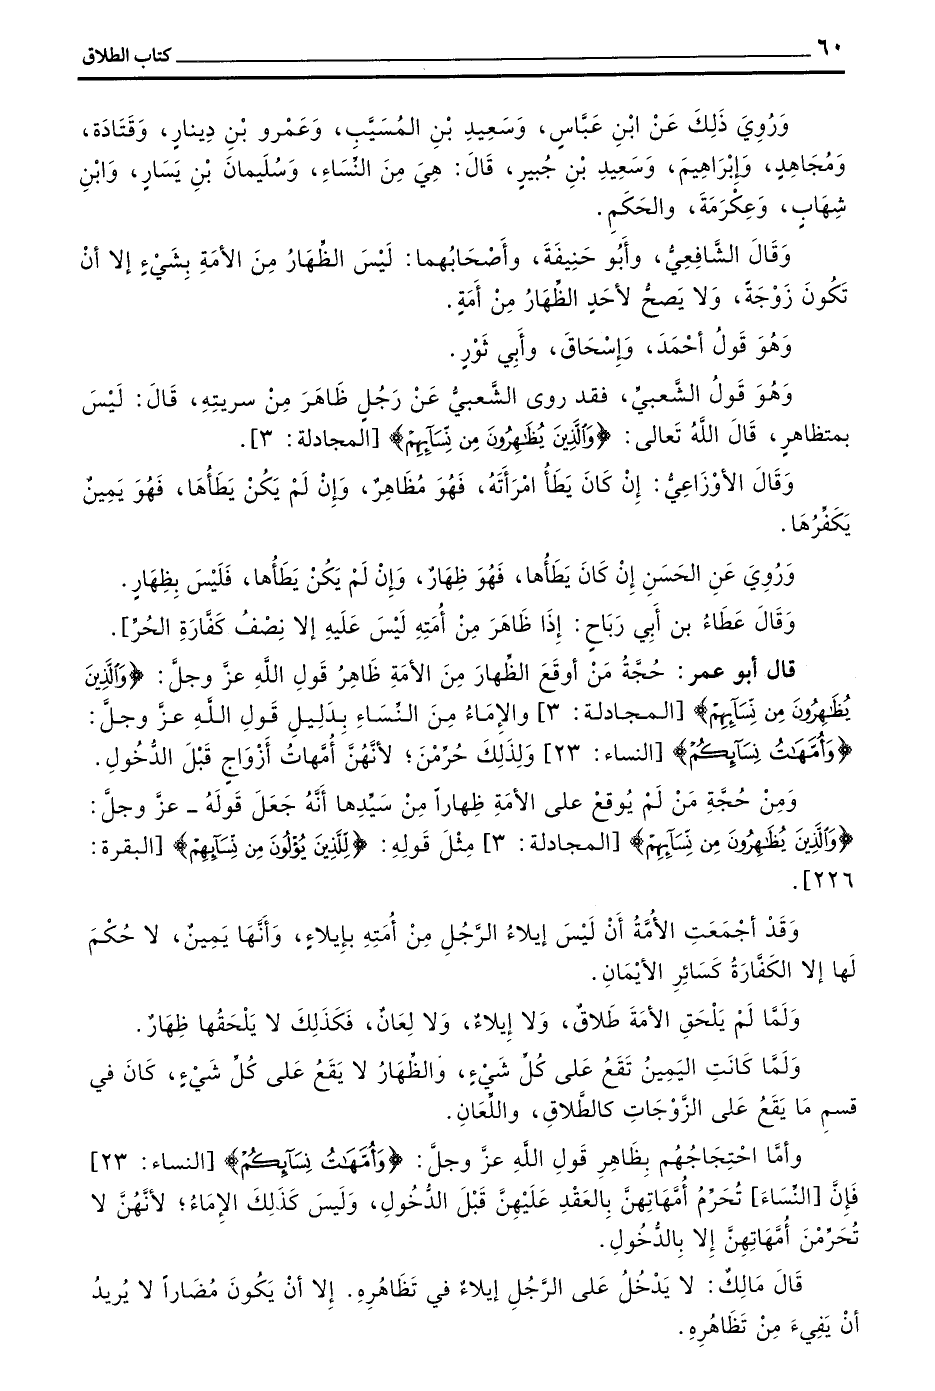 ٦٠ كتاب الطلاق
وَرُوِيَ ذَلِكَ عَنْ ابْنِ عَبَّاسٍ، وَسَعِيدِ بْنِ المُسَيَّبِ، وَعَمْرِو بْنِ دِينارٍ، وَقَتَادَةَ،
وَمُجَاهِدٍ، وَإِبْرَاهِيمَ، وَسَعِيدِ بْنِ جُبيرٍ، قَالَ: هِيَ مِنَ النِّسَاءِ، وَسُلَيمانَ بْنِ يَسَارٍ، وَابْنِ
شِهَابٍ، وَعِكْرَمَةَ، والحَكَمِ.
وَقَالَ الشَّافِعِيُّ، وأَبُو حَنِيفَةَ، وأَصْحَابُهما: لَيْسَ الظِّهَارُ مِنَ الأمَةِ بِشَيْءٍ إلا أنْ
تَكُونَ زَوْجَةً، وَلا يَصحُّ لأحَدٍ الظِّهَارُ مِنْ أَمَةٍ.
وَهُوَ قَولُ أحْمَدَ، وَإِسْحَاقَ، وأَبِي ثَوْرٍ.
وَهُوَ قَولُ الشَّعبيِّ، فقد روى الشَّعبيُّ عَنْ رَجُلٍ ظَاهَرَ مِنْ سريتِهِ، قَالَ: لَيْسَ
بمتظاهرٍ، قَالَ اللَّهُ تَعالى: ﴿وَالَّذِينَ يُظَاهِرُونَ مِن نِّسَآئِهِمْ﴾ [المجادلة: ٣].
وَقَالَ الأوْزَاعِيُّ: إِنْ كَانَ يَطَأُ امْرَأَتَهُ، فَهُوَ مُظَاهِرٌ، وَإِنْ لَمْ يَكُنْ يَطَأُهَا، فَهُوَ يَمِينٌ
يَكَفِّرُهَا.
وَرُوِيَ عَنِ الحَسَنِ إِنْ كانَ يَطَأُها، فَهُوَ ظِهَارٌ، وَإِنْ لَمْ يَكُنْ يَطَأُها، فَلَيْسَ بِظِهَارٍ.
وَقَالَ عَطَاءُ بن أَبِي رَبَاحٍ: إِذَا ظَاهَرَ مِنْ أُمَتِهِ لَيْسَ عَلَيهِ إلا نِصْفُ كَفَّارَةِ الحُرِّ].
قال أبو عمر: حُجَّةُ مَنْ أوقَعَ الظِّهارَ مِنَ الأمَةِ ظَاهِرُ قَولِ اللَّهِ عزَّ وجلَّ: ﴿وَالَّذِينَ
يُظَاهِرُونَ مِن نِّسَآئِهِمْ﴾ [المجادلة: ٣] والإمَاءُ مِنَ النِّسَاءِ بِدَلِيلِ قَولِ اللَّهِ عزَّ وجلَّ:
﴿وَأُمَّهَاتُ نِسَآئِكُمْ﴾ [النساء: ٢٣] وَلِذَلِكَ حُرِّمْنَ؛ لأنَّهُنَّ أُمَّهاتُ أزْواجٍ قَبْلَ الدُّخُولِ.
وَمِنْ حُجَّةِ مَنْ لَمْ يُوقعْ على الأمَةِ ظِهاراً مِنْ سَيِّدِها أنَّهُ جَعَلَ قَولَهُ ـ عزَّ وجلَّ:
﴿وَالَّذِينَ يُظَاهِرُونَ مِن نِّسَآئِهِمْ﴾ [المجادلة: ٣] مِثْلَ قَولِهِ: ﴿لِلَّذِينَ يُؤْلُونَ مِن نِّسَآئِهِمْ﴾ [البقرة:
٢٢٦].
وَقَدْ أجْمَعَتِ الأُمَّةُ أَنْ لَيْسَ إيلاءُ الرَّجُلِ مِنْ أُمَتِهِ بإيلاءٍ، وَأَنَّهَا يَمِينٌ، لا حُكْمَ
لَها إلا الكَفَّارَةُ كَسَائِرِ الأيْمَانِ.
وَلَمَّا لَمْ يَلْحَقِ الأمَةَ طَلاقٌ، وَلا إيلاءٌ، وَلا لِعَانٌ، فَكَذَلِكَ لا يَلْحَقُها ظِهَارٌ.
وَلَمَّا كَانَتِ اليَمِينُ تَقَعُ عَلى كُلِّ شَيْءٍ، وَالظِّهَارُ لا يَقَعُ عَلى كُلِّ شَيْءٍ، كَانَ في
قسمِ مَا يَقَعُ عَلى الزَّوْجَاتِ كالطَّلاقِ، واللِّعَانِ.
وأمَّا احْتِجَاجُهُم بِظَاهِرِ قَولِ اللَّهِ عزَّ وجلَّ: ﴿وَأُمَّهَاتُ نِسَآئِكُمْ﴾ [النساء: ٢٣]
فَإنَّ [النِّسَاءَ] تُحَرِّمُ أُمَّهَاتِهِنَّ بِالعَقْدِ عَلَيْهِنَّ قَبْلَ الدُّخُولِ، وَلَيسَ كَذَلِكَ الإمَاءُ؛ لأنَّهُنَّ لا
تُحَرِّمْنَ أُمَّهَاتِهِنَّ إلا بِالدُّخُولِ.
قَالَ مَالِكٌ: لا يَدْخُلُ عَلى الرَّجُلِ إيلاءٌ في تَظَاهُرِهِ. إلا أنْ يَكُونَ مُضَاراً لا يُرِيدُ
أنْ يَفِيءَ مِنْ تَظَاهُرِهِ.